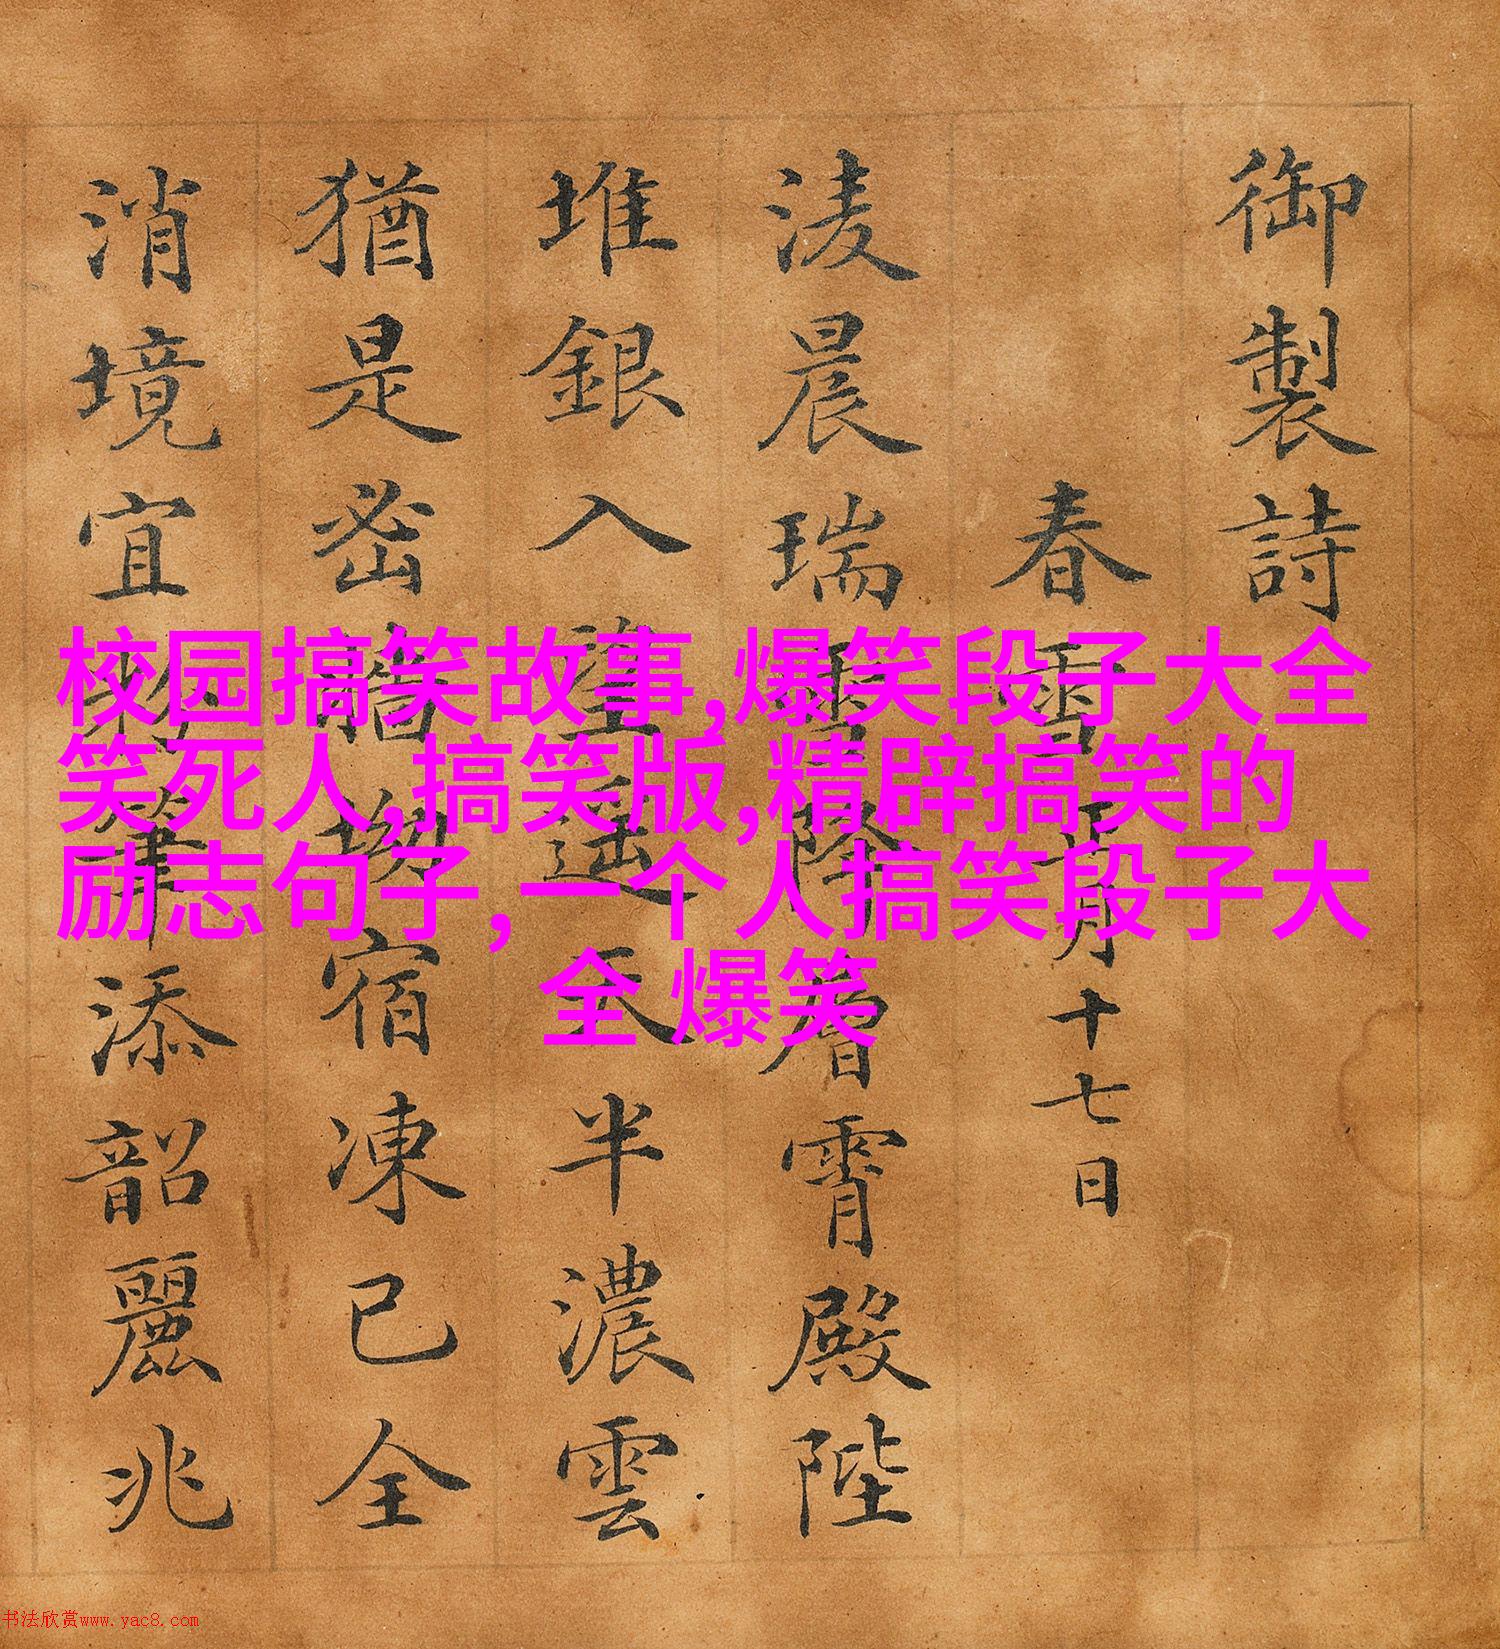 御製詩
春雪正月十七日
淩晨瑞雪降層霄殿陛
堆銀入望遥天半濃雲
猶是密坳宿凍已全
消境宜筆添韶麗兆
校园搞笑故事,爆笑段子大全
笑死人,搞笑版,精辟搞笑的
励志句子,一个人搞笑段子大
全 爆笑
书法欣赏www.yac8.com